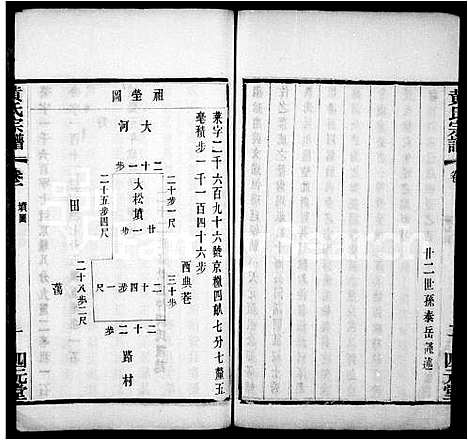 黃氏宗譜
卷
廿二世孫泰岳謹述
二
四元堂
葉字二千六百九十六號京糧四畝七分七釐五
毫積步一千一百四十六步
祖塋圖
大河
二十一步
大松墳一
廿
二十步一尺
西典巷
三十步
二十五步四尺
田
蕩
二十八步二尺
二十四步一尺
二十二步
路村
黃氏宗譜
卷一
墳圖
一
四元堂